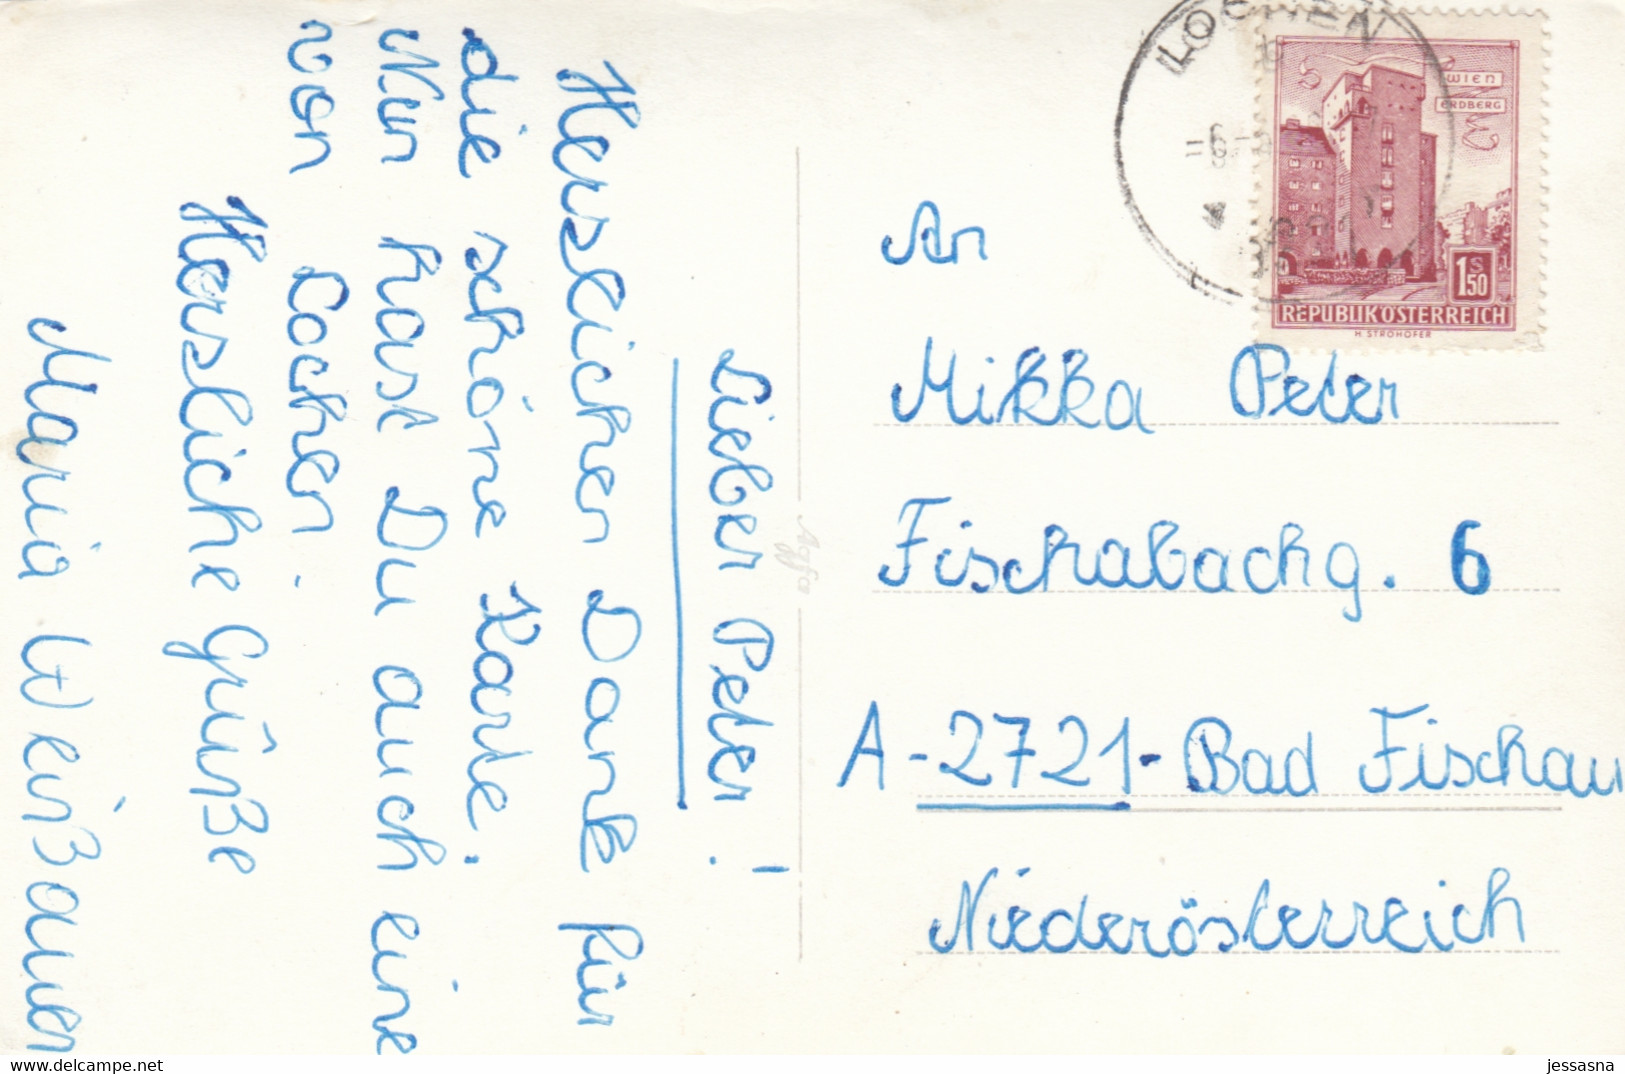 Lieber Peter!
Herzlichen Dank für
die schöne Karte.
Nun hast Du auch eine
von Lochen
Herzliche Grüße
Maria Weinßauer
Agfa
LOCHEN
WIEN
ERDBERG
1S50
REPUBLIK ÖSTERREICH
H. STROHOFER
An
Mikka Peter
Fischabachg. 6
A-2721-Bad Fischau
Niederösterreich
delcampe.net
jessasna